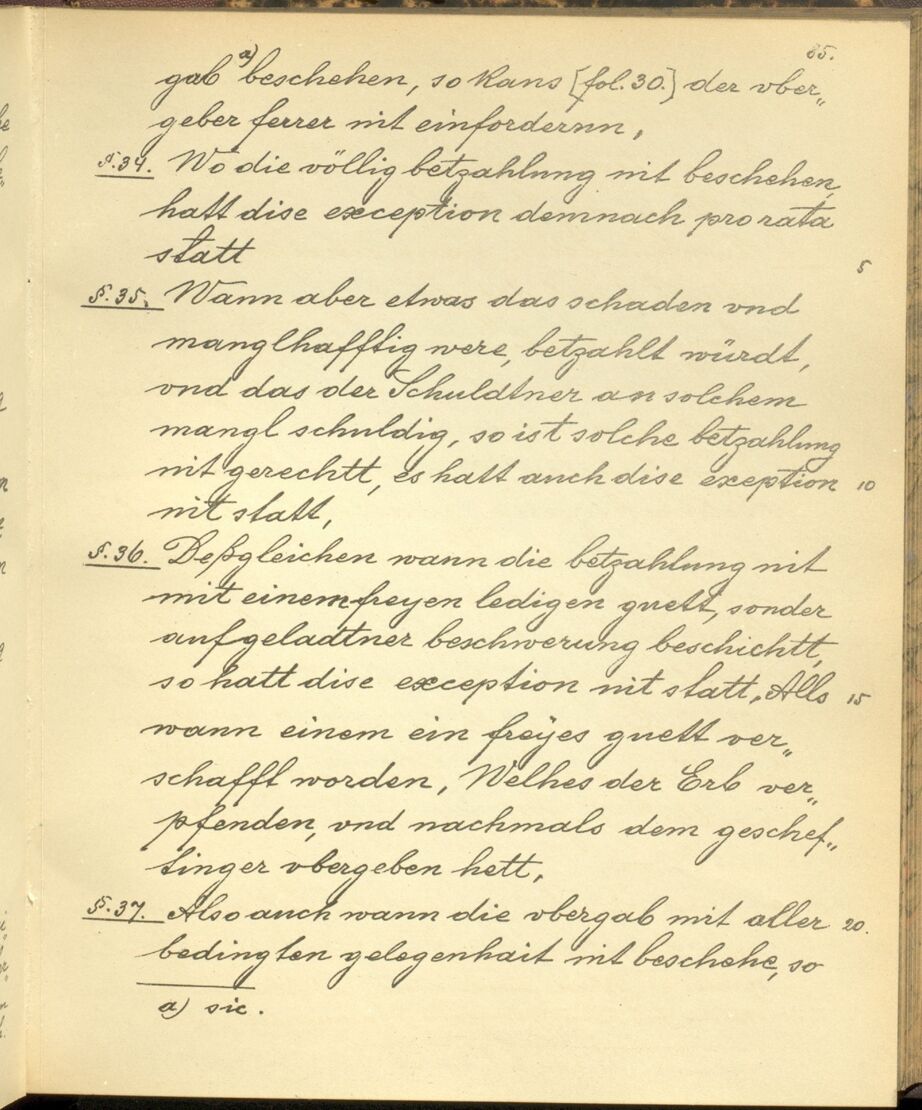 85.
gab a) beschehen, so kans [fol. 30.] der vber„
geber ferrer nit einfordernn,
§.34. Wo die völlig betzahlung nit beschehen,
hatt dise exception demnach pro rata
statt
5
§.35. Wann aber etwas das schaden vnd
manglhafftig were, betzahlt würdt,
vnd das der Schuldtner an solchem
mangl schuldig, so ist solche betzahlung
nit gerechtt, es hatt auch dise exeption 10
nit statt,
§.36. Deßgleichen wann die betzahlung nit
mit einem freyen ledigen guett, sonder
auf geladtner beschwerung beschichtt,
so hatt dise exception nit statt, Alls 15
wann einem ein freÿes guett ver„
schafft worden, Welhes der Erb ver„
pfenden, vnd nachmals dem geschef„
tinger vbergeben hett,
§.37. Also auch wann die vbergab mit aller 20.
bedingten gelegenhait nit beschehe, so
a) sic.